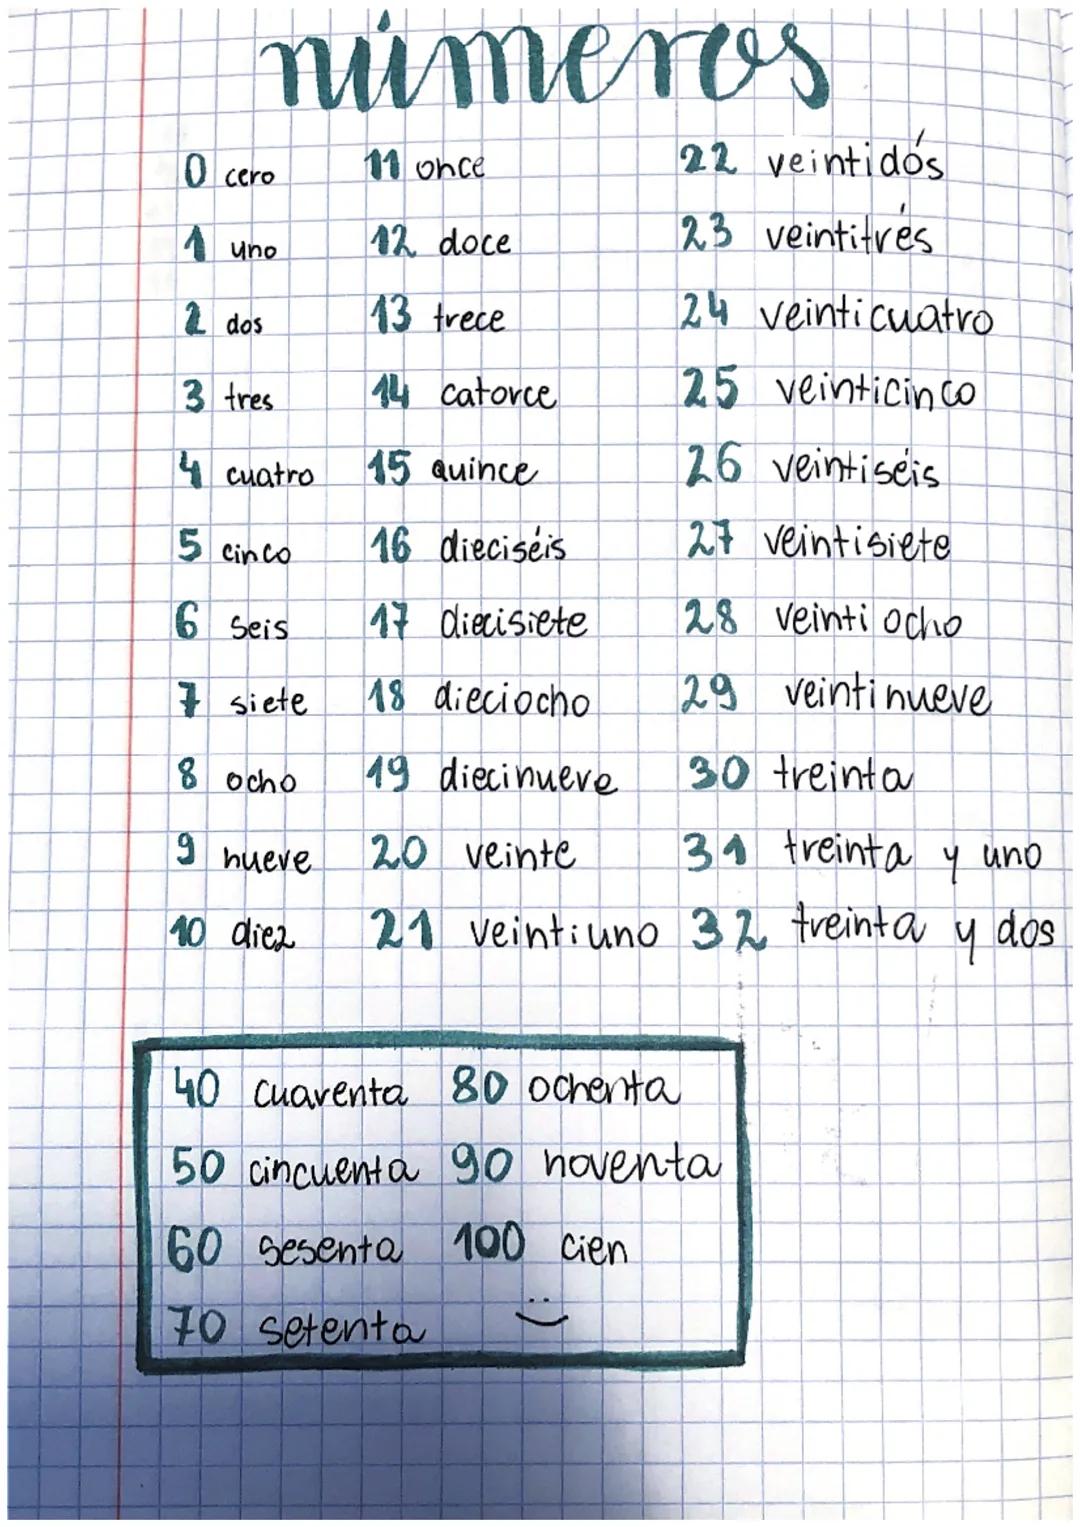 números
0 cero 11 once 22 veintidós
1 uno 12 doce 23 veintitrés
2 dos 13 trece 24 veinticuatro
3 tres 14 catorce 25 veinticinco
4 cuatro 15 quince 26 veintiséis
5 cinco 16 dieciséis 27 veintisiete
6 seis 17 diecisiete 28 veinti ocho
7 siete 18 dieciocho 29 veintinueve
8 ocho 19 diecinueve 30 treinta
9 nueve 20 veinte 31 treinta y uno
10 diez 21 veintiuno 32 treinta y dos
40 cuarenta 80 ochenta
50 cincuenta 90 noventa
60 sesenta 100 cien
70 setenta :)